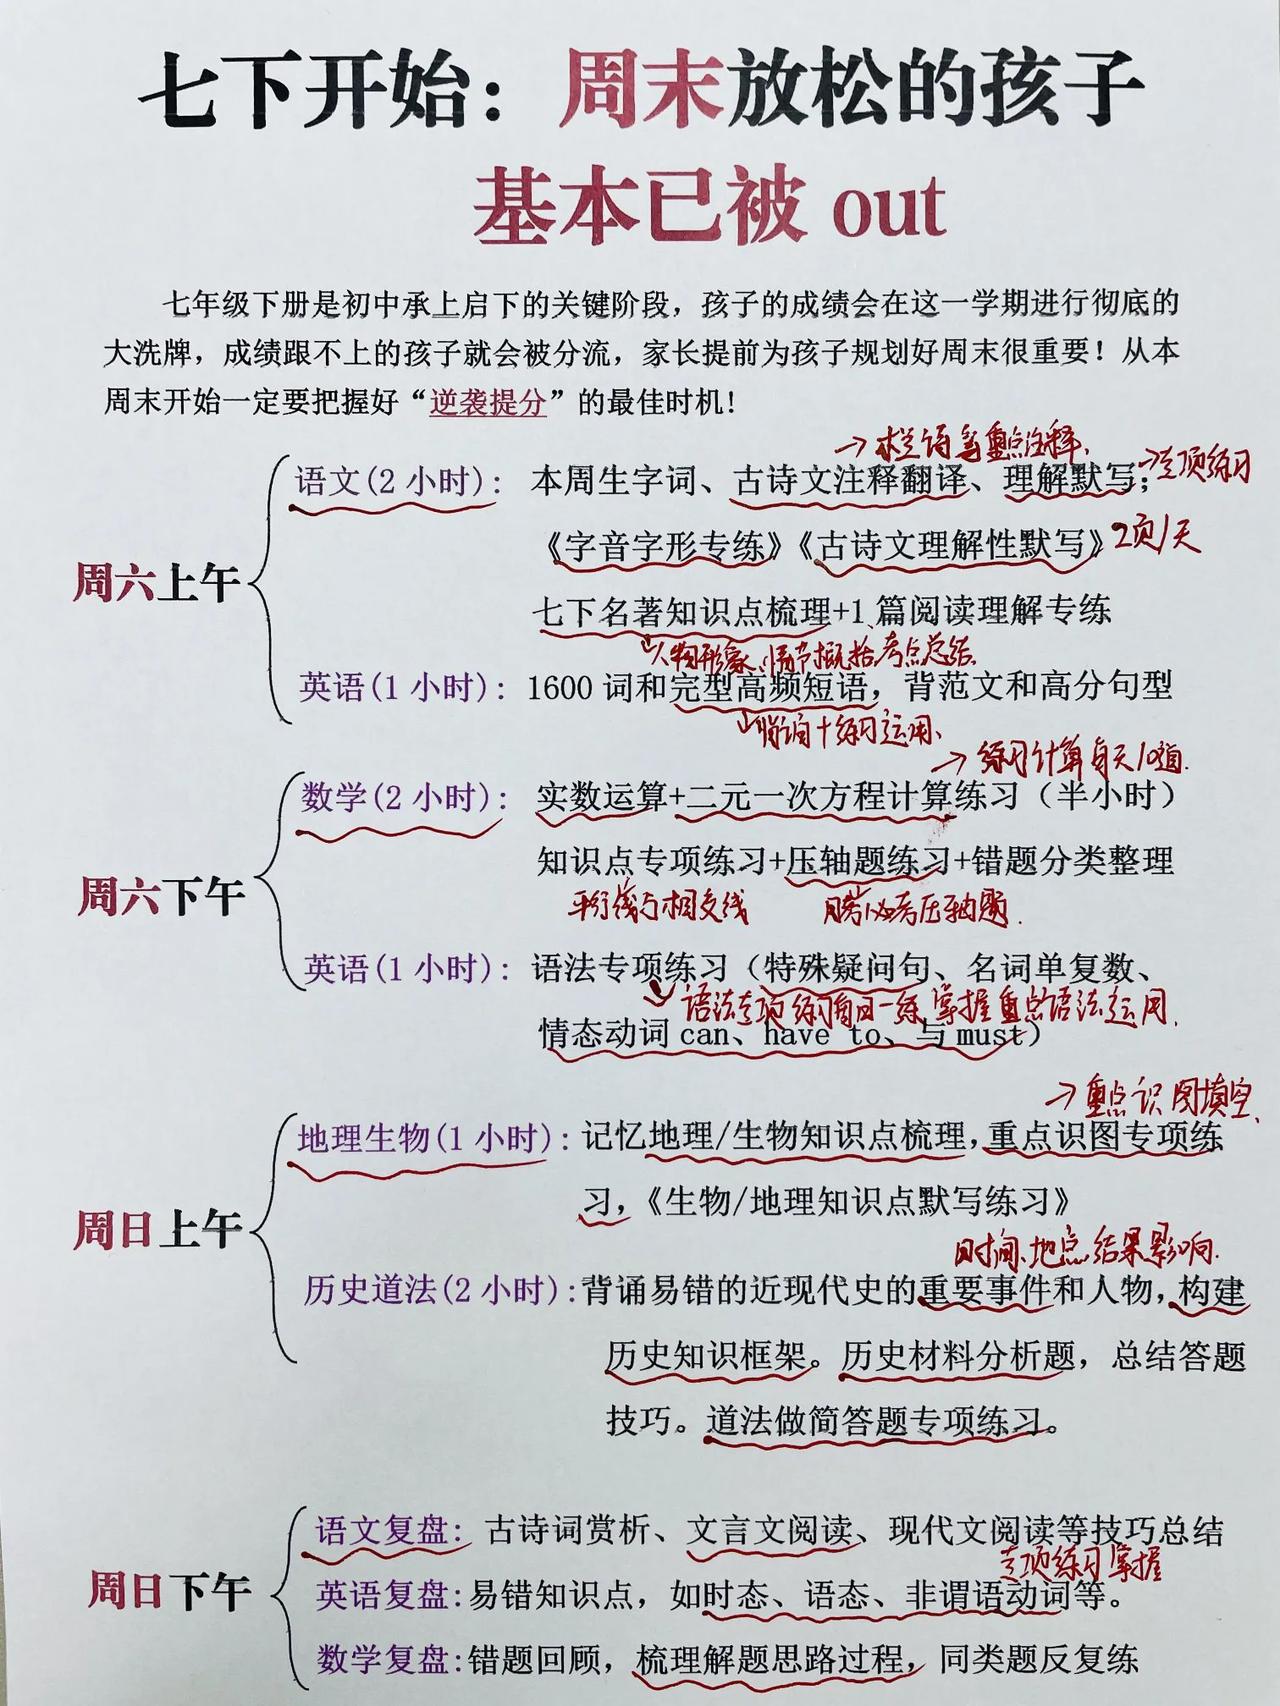 七下开始：周末放松的孩子
基本已被 out
七年级下册是初中承上启下的关键阶段，孩子的成绩会在这一学期进行彻底的
大洗牌，成绩跟不上的孩子就会被分流，家长提前为孩子规划好周末很重要！从本
周末开始一定要把握好“逆袭提分”的最佳时机！
周六上午
→ 诗等重点注释、
语文(2 小时)： 本周生字词、古诗文注释翻译、理解默写； →专项练习
《字音字形专练》《古诗文理解性默写》 2页/天
七下名著知识点梳理+1 篇阅读理解专练
人物形象、情节概括、考点总结、
英语(1 小时)： 1600 词和完型高频短语，背范文和高分句型
背诵+练习运用、
周六下午
→ 练习计算每天10道.
数学(2 小时)： 实数运算+二元一次方程计算练习（半小时）
知识点专项练习+压轴题练习+错题分类整理
平行线与相交线 期必考压轴题.
英语(1 小时)： 语法专项练习（特殊疑问句、名词单复数、
语法专项练习每日一练 掌握重点语法运用.
情态动词 can、have to、与 must）
周日上午
→ 重点识图填空、
地理生物(1 小时)：记忆地理/生物知识点梳理，重点识图专项练
习，《生物/地理知识点默写练习》
时间、地点、结果影响.
历史道法(2 小时)：背诵易错的近现代史的重要事件和人物，构建
历史知识框架。历史材料分析题，总结答题
技巧。道法做简答题专项练习。
周日下午
语文复盘： 古诗词赏析、文言文阅读、现代文阅读等技巧总结
专项练习掌握
英语复盘：易错知识点，如时态、语态、非谓语动词等。
数学复盘：错题回顾，梳理解题思路过程，同类题反复练